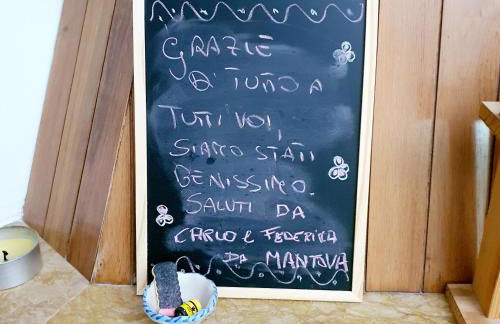 GRAZIE
DI TUTTO A
TUTTI VOI,
SIAMO STATI
BENISSIMO.
SALUTI DA
CARLO E FEDERICA
DA MANTOVA